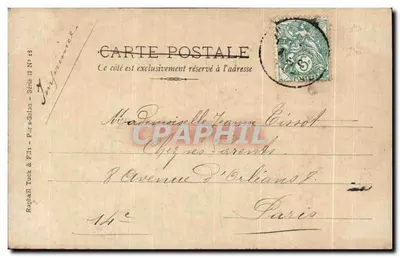 CARTE POSTALE
Ce côté est exclusivement réservé à l'adresse
Imprimé
Raphael Tuck & Fils - Paris - Série
Mademoiselle Jeanne Tissot
Chez ses Parents
8 Avenue d'Orléans 8.
Paris
14e
CPAPHIL.COM
5